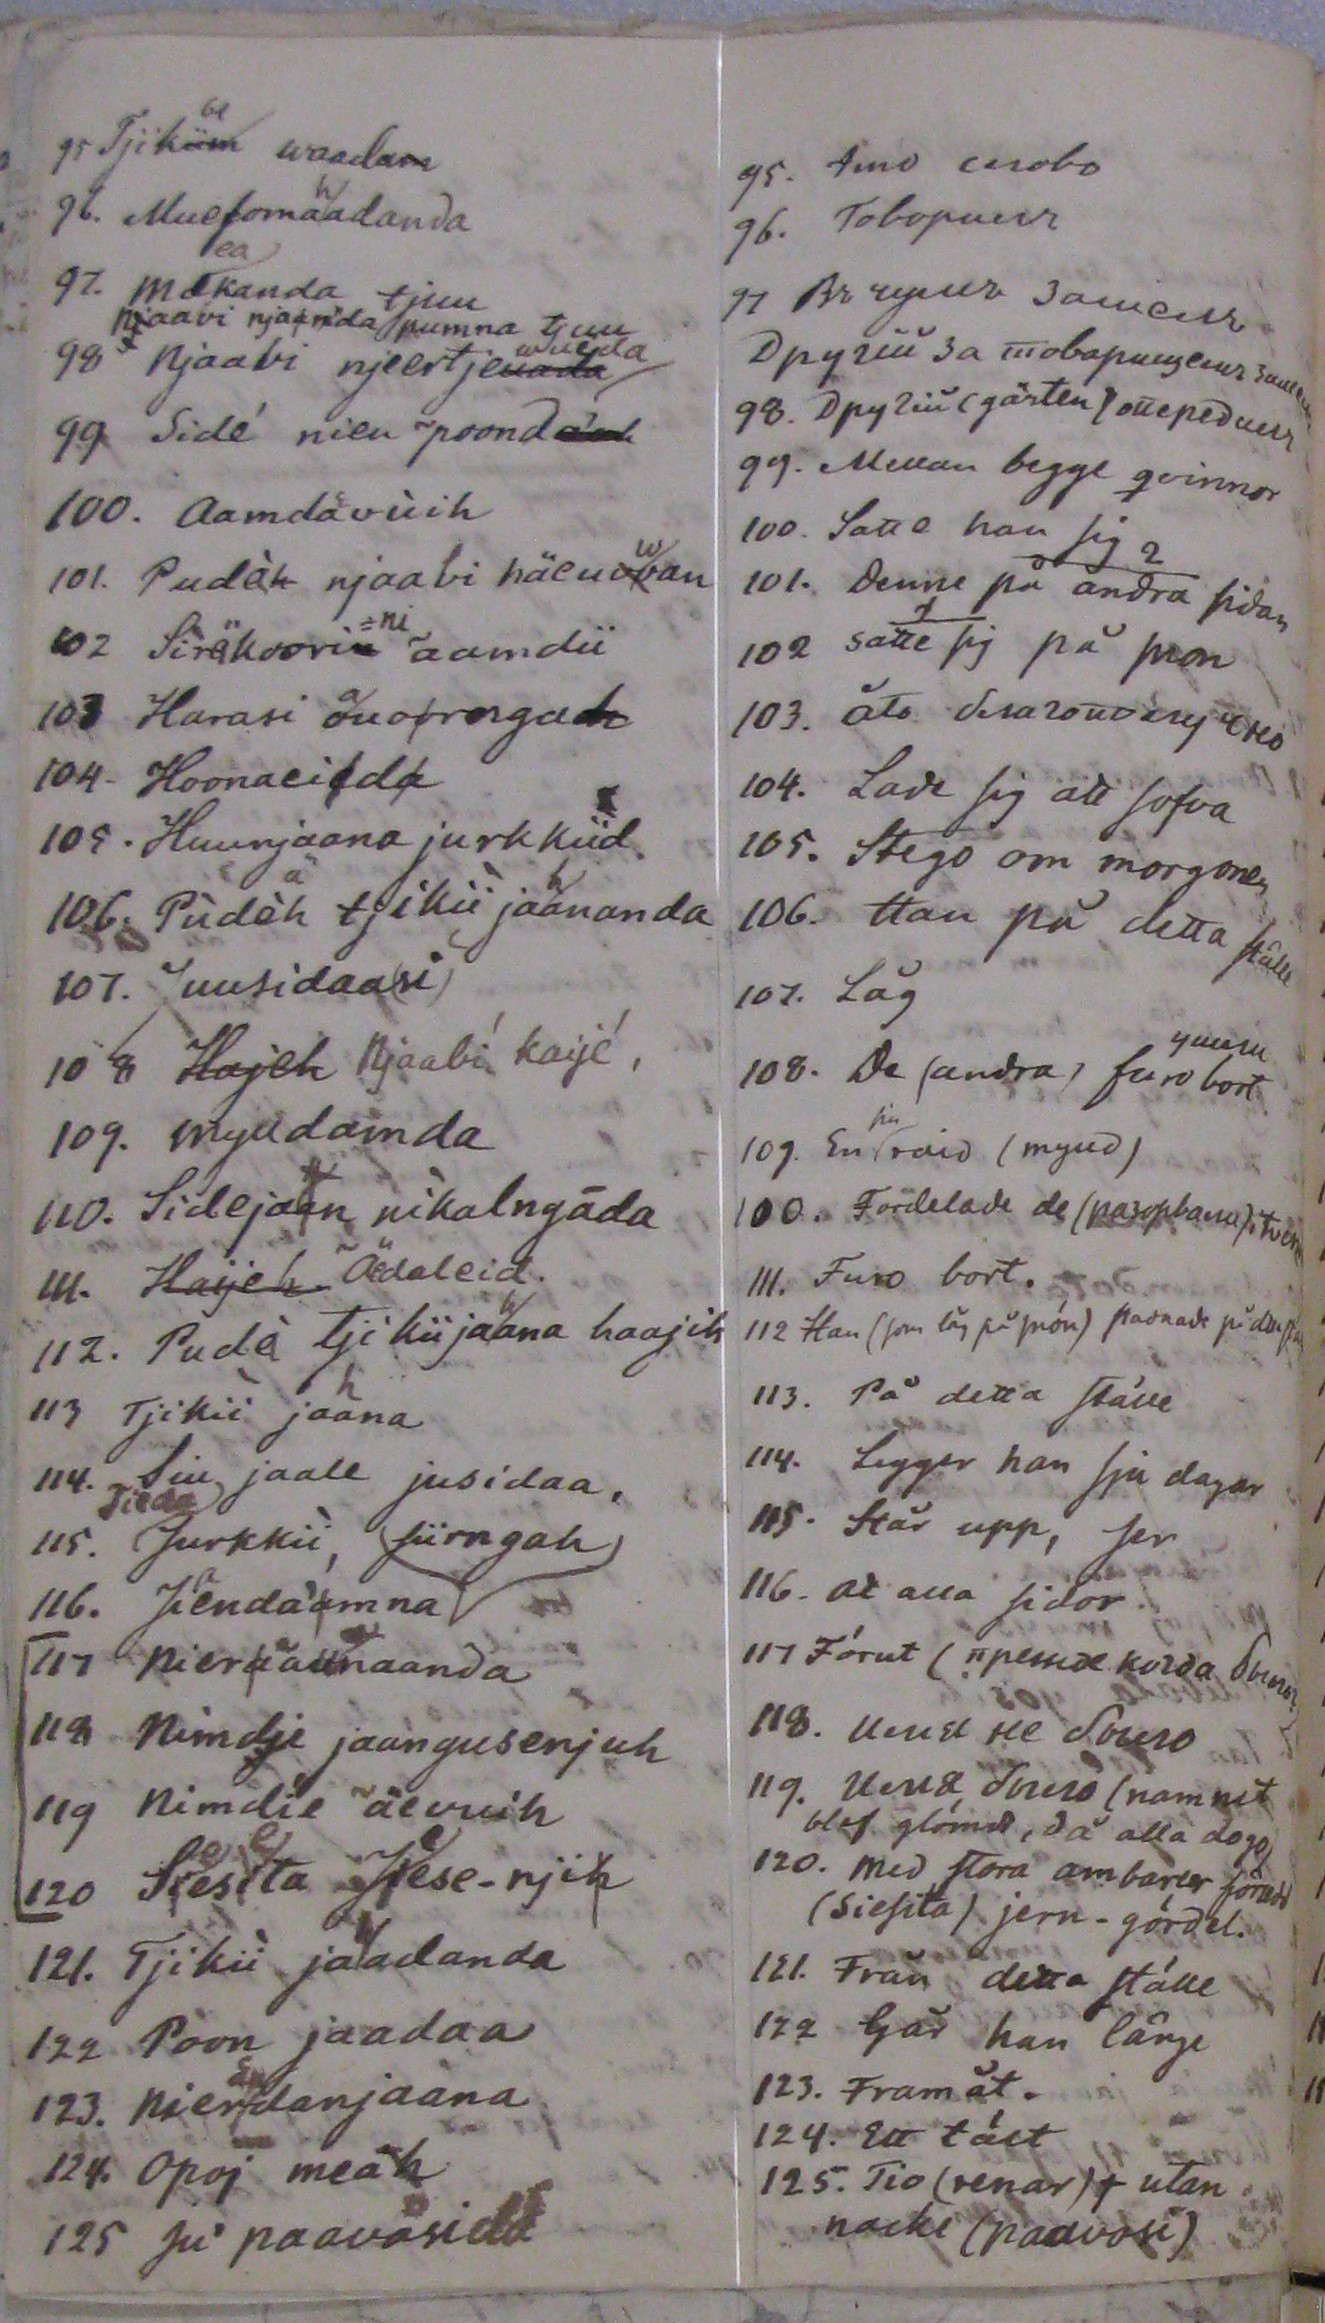 95 Tjiküm waadam
be
96. Muesomaadanda
h
97. Mækanda tjuu
ea
Njaavi njaanda pumna tjuu
98 Njaabi njeertjeuada
wueda
99 Sidé nieu poond
100. Aamdavüih
101. Pudäh njaabi häeuovan
w
102 Siräkoorin aamdü
=ni
103 Harasi
104. Hoonaeida
105. Huunjaana jurkküd
106. Püdäh tjikü jaananda
ä h
107. Juusidaa(si)
108 Hajeh Njaabi kaijé,
109. Myudamda
110. Sidejaan nikalngada
111. Haijeh Ädaleid.
112. Pudä tjikü jaana haajih
h
113 Tjikü jaana
h
114. Siu jaale jusidaa,
Tieda
115. Jurkkü, (sürngah)
116. Jiendaamna
117 Nieraunaanda
118 Nimdje jaangusenjuh
119 Nimdie äevuih
120 Siesita Jiese-njih
121. Tjikü jaadanda
122 Poon jaadaa
123. Nierdanjaana
124. Opoj meäh
125 Ju paavosi
95. Это слово
96. Говорилъ
97 Въ чумъ зашелъ
Другій за товарищемъ зашелъ
98. Другій (gästen) опередилъ
99. Mellan begge qvinnor
100. Satte han sig
101. Denne på andra sidan
2
102 satte sig på snön
1
103. åto благополучно
104. Lade sig att sofva
105. Stego om morgonen
106. Han på detta ställe
107. Låg
108. De (andra) furo bort
ушли
109. En raid (myud)
sin
100. Fördelade de (разорвали) i tvenne
111. Furo bort.
112 Han (som låg på snön) stadnade på den
113. På detta ställe
114. Ligger han sju dagar
115. Står upp, ser
116. åt alla sidor.
117 Förut (прежде когда было)
118. Имя не было
119. Имя было (namnet
blef glömdt, då alla dogo)
120. Med stora ambarer försedd
(siesita) jern-gördel.
121. Från detta ställe
122 Går han länge
123. Framåt.
124. Ett täct
125. Tio (renar) + utan
nacke (paavosi)